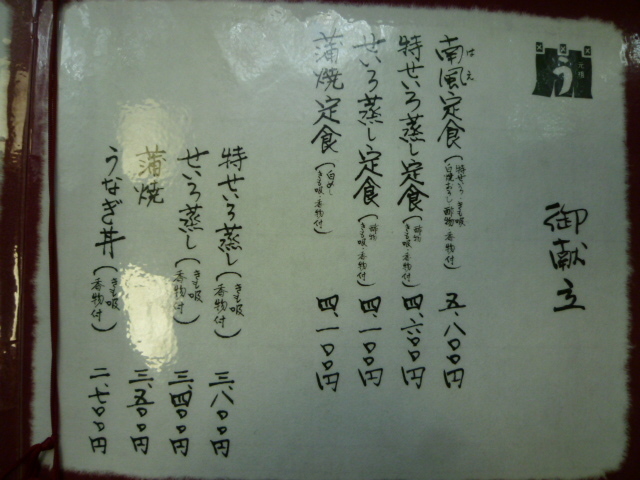 う
御献立
南風定食(特せいろ・きも吸 白焼おろし・酢物・香物付) 五、八〇〇円
はえ
特せいろ蒸し定食(酢物 きも吸・香物付) 四、六〇〇円
せいろ蒸し定食(酢物 きも吸・香物付) 四、一〇〇円
蒲焼定食(白めし きも吸・香物付) 四、一〇〇円
特せいろ蒸し(きも吸 香物付) 三、八〇〇円
せいろ蒸し(きも吸 香物付) 三、四〇〇円
蒲焼 三、五〇〇円
うなぎ丼(きも吸 香物付) 二、七〇〇円